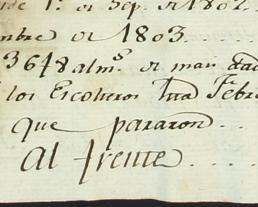 de 1.º de Sep.e de 1802
mbre de 1803
3648 alm.s de mais
los Escoheros hta Febr
que pararon
al frente